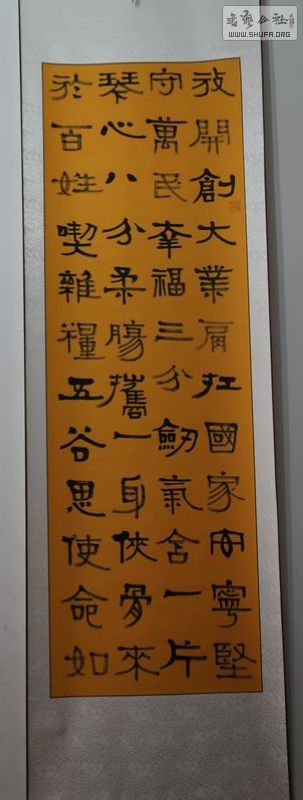 書藝公社
WWW.SHUFA.ORG
放開創大業肩扛國家安寧堅
守萬民幸福三分劍氣含一片
琴心八分柔腸攜一身俠骨來
於百姓喫雜糧五谷思使命如